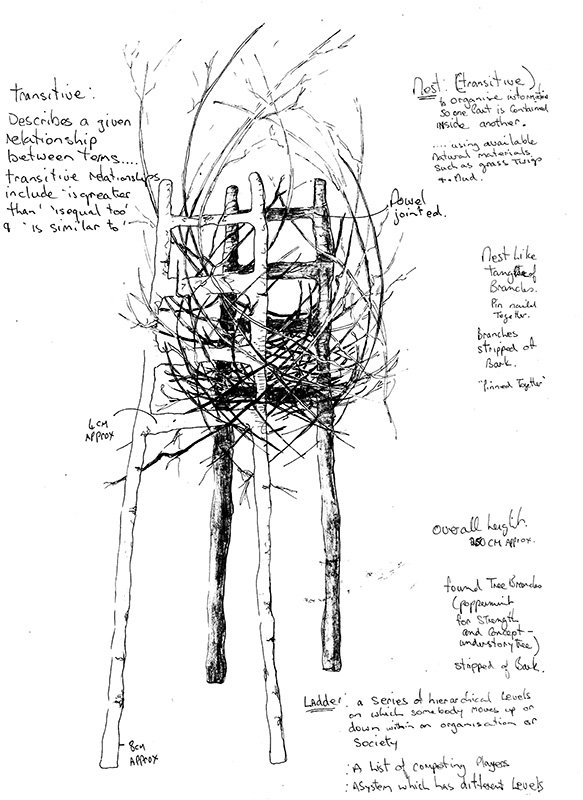 transitive:
Describes a given
relationship
between Terms....
transitive relationships
include 'is greater
than' 'is equal too'
& 'is similar to'
Nest: (transitive)
to organise informatio
so one part is contained
inside another.
.... using available
natural materials
such as grass Twigs
& Mud.
Dowel
jointed.
Nest Like
tangle of
Branches.
Pin nailed
Together.
Branches
stripped of
Bark.
"Pinned Together"
6CM
APPROX
Overall height.
350 CM APPROX.
found Tree Branches
(peppermint
for Strength
and Concept -
understory Tree)
stripped of Bark.
Ladder: a series of hierarchical Levels
on which somebody moves up or
down within an organisation or
Society
: A List of competing Players
: A System which has different Levels
8CM
APPROX